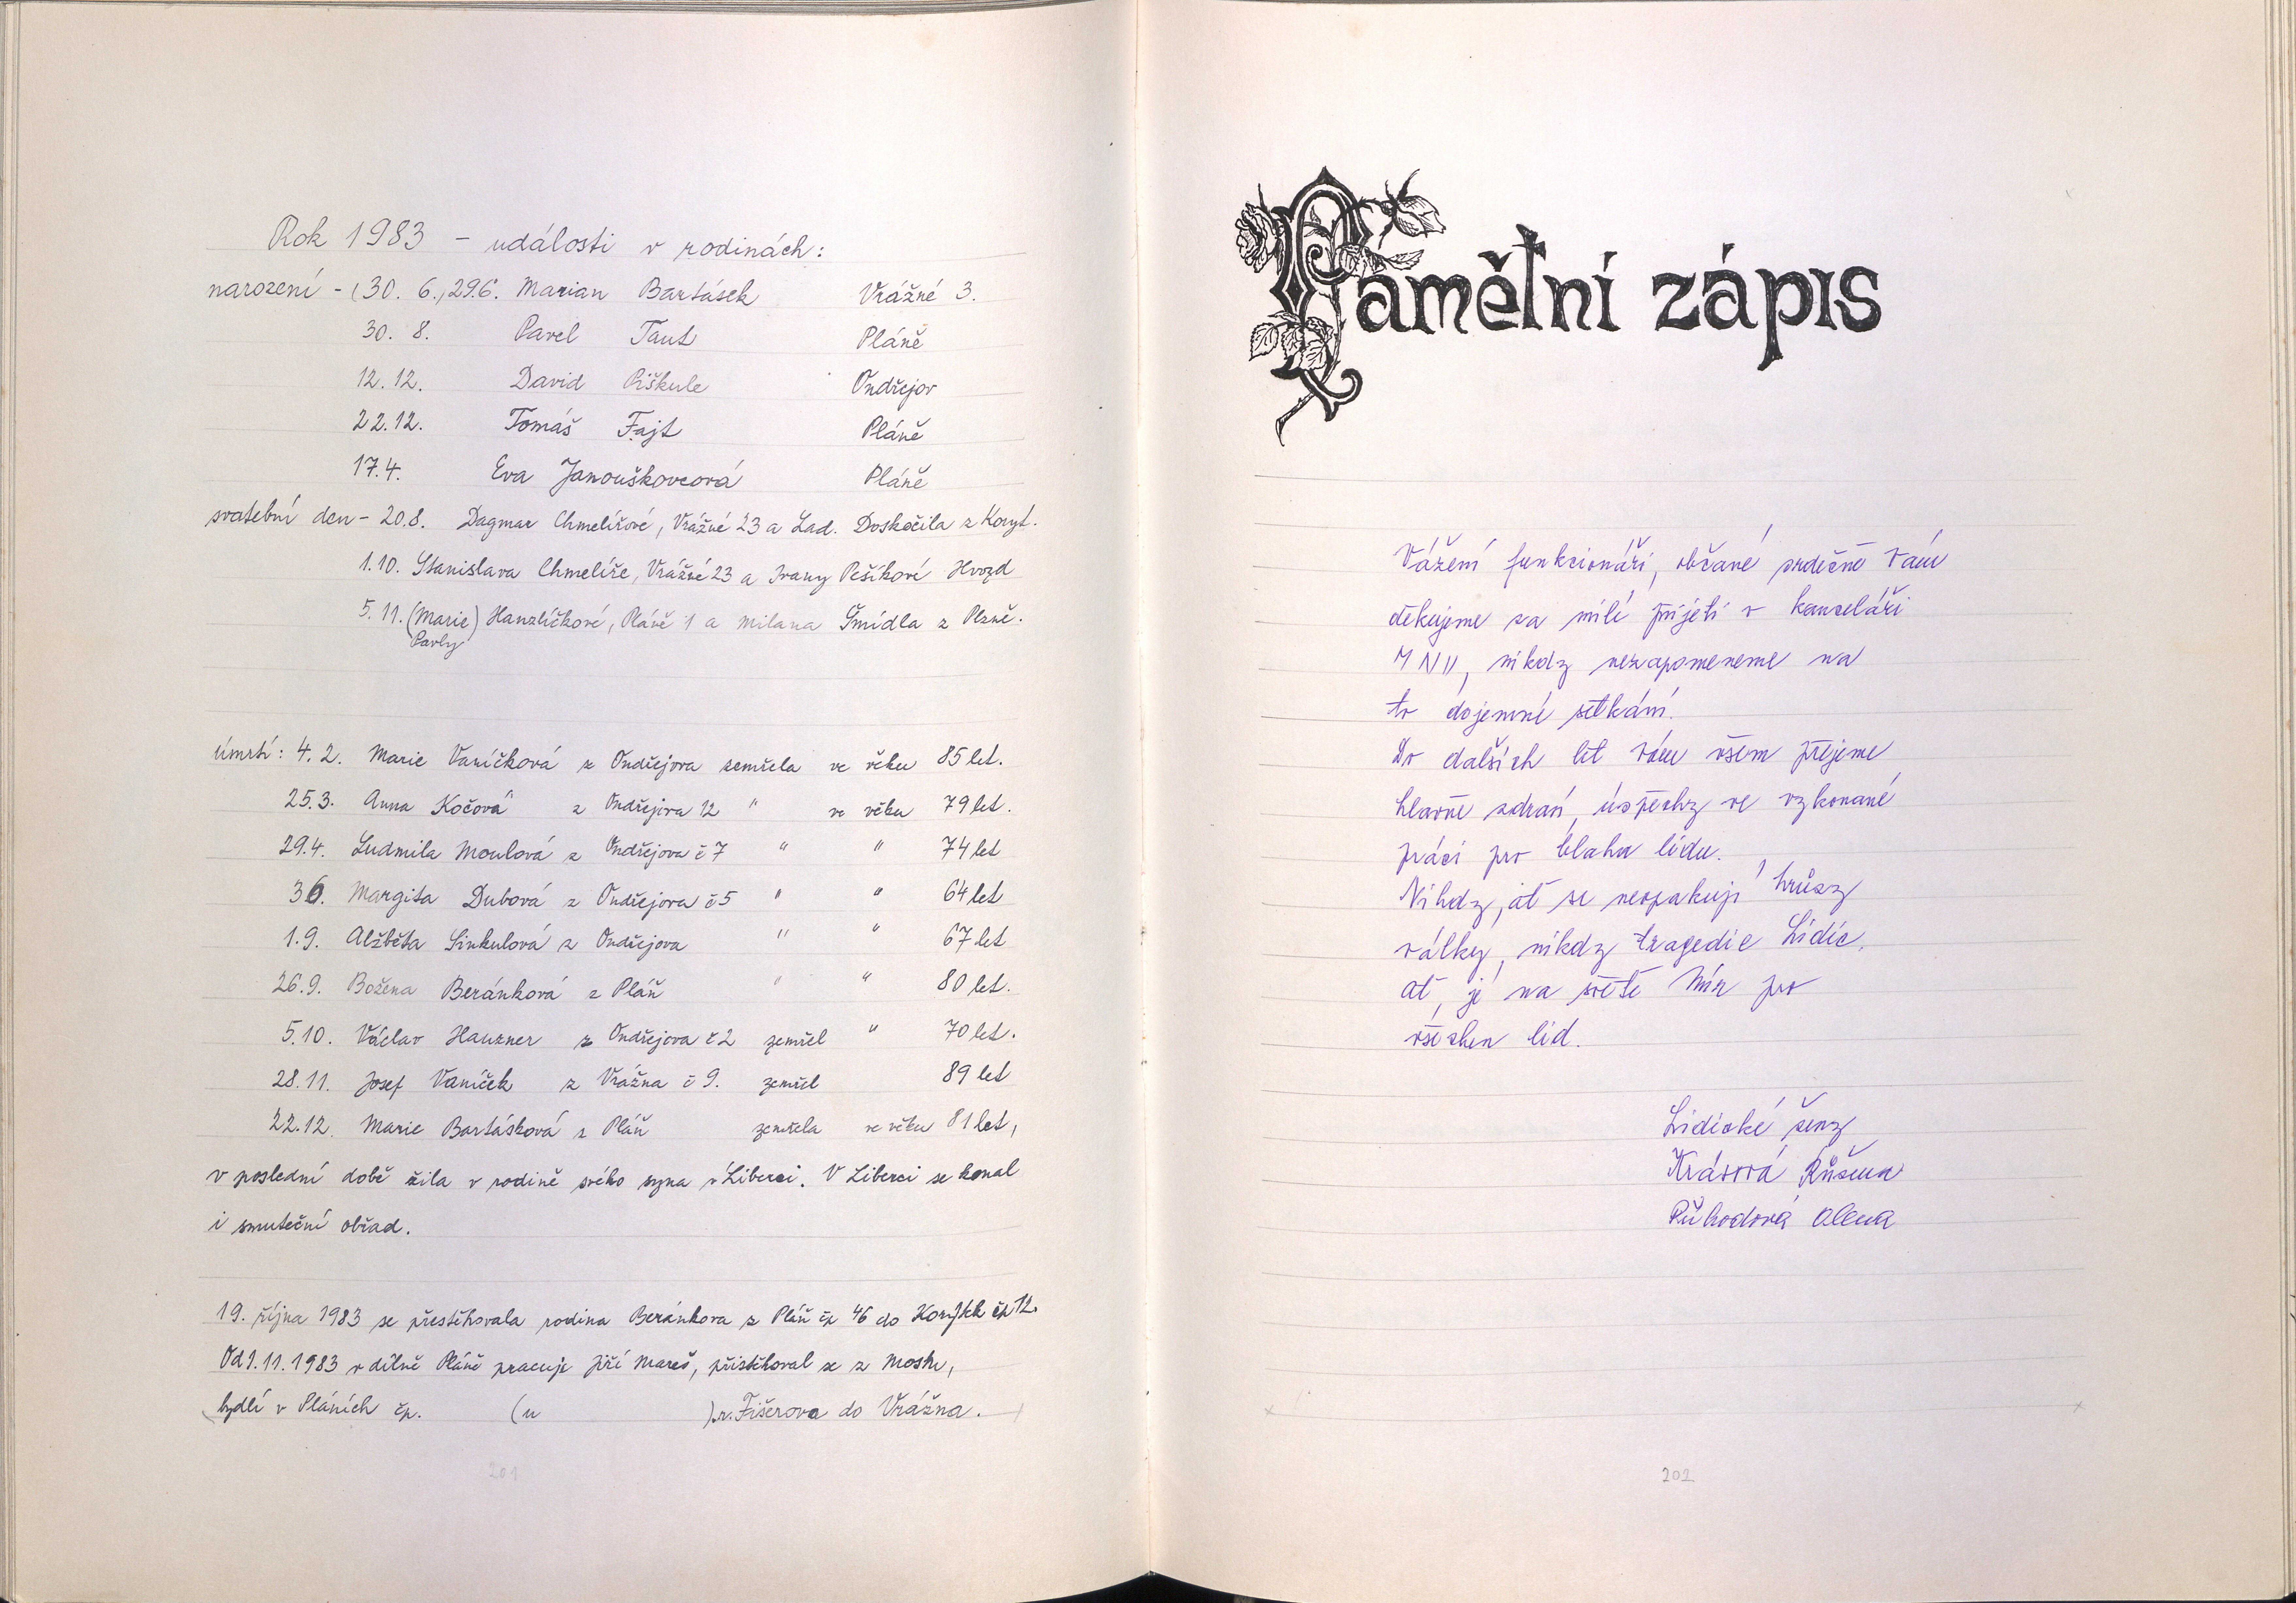 Rok 1983 - události v rodinách:
narození - (30. 6.) 29.6. Marian Bartásek Vrážné 3.
30. 8. Pavel Taut Pláně
12. 12. David Piškule Ondřejov
22. 12. Tomáš Fajt Pláně
17. 4. Eva Janouškovcová Pláně
svatební den - 20.8. Dagmar Chmelířové, Vrážné 23 a Lad. Doskočila z Koryt.
1.10. Stanislava Chmelíře, Vrážné 23 a Ivany Pešíkové Hvozd
5. 11. (Marie) Hanzlíčkové, Pláně 1 a Milana Šmídla z Plzně.
Pavly
úmrtí: 4. 2. Marie Vaníčková z Ondřejova zemřela ve věku 85 let.
25.3. Anna Kočová z Ondřejova 12 " ve věku 79 let.
29.4. Ludmila Moulová z Ondřejova č 7 " " 74 let
3 6. Margita Dubová z Ondřejova č 5 " " 64 let
1.9. Alžběta Sinkulová z Ondřejova " " 67 let
26.9. Božena Beránková z Pláň " " 80 let.
5.10. Václav Hauzner z Ondřejova č 2 zemřel " 70 let.
28.11. Josef Vaníček z Vrážna č 9. zemřel 89 let
22.12. Marie Bartásková z Pláň zemřela ve věku 81 let,
v poslední době žila v rodině svého syna v Liberci. V Liberci se konal
i smuteční obřad.
19. října 1983 se přestěhovala rodina Beránkova z Pláň čp 46 do čp 12.
Od 1.11.1983 v dílně Pláně pracuje Jiří Mareš, přistěhoval se z Mostu,
bydlí v Pláních čp. (u ) r. Fišerova do Vrážna.
201
Pamětní zápis
Vážení funkcionáři, občané srdečně Vám
děkujeme za milé přijetí v kanceláři
MNV, nikdy nezapomeneme na
to dojemné setkání.
Do dalších let Vám všem přejeme
hlavně zdraví, úspěchy ve vykonané
práci pro blaho lidu.
Nikdy, ať se neopakují hrůzy
války, nikdy tragedie Lidic.
ať, je na světě Mír pro
všechen lid.
Lidické ženy
Růžena
Alena
202